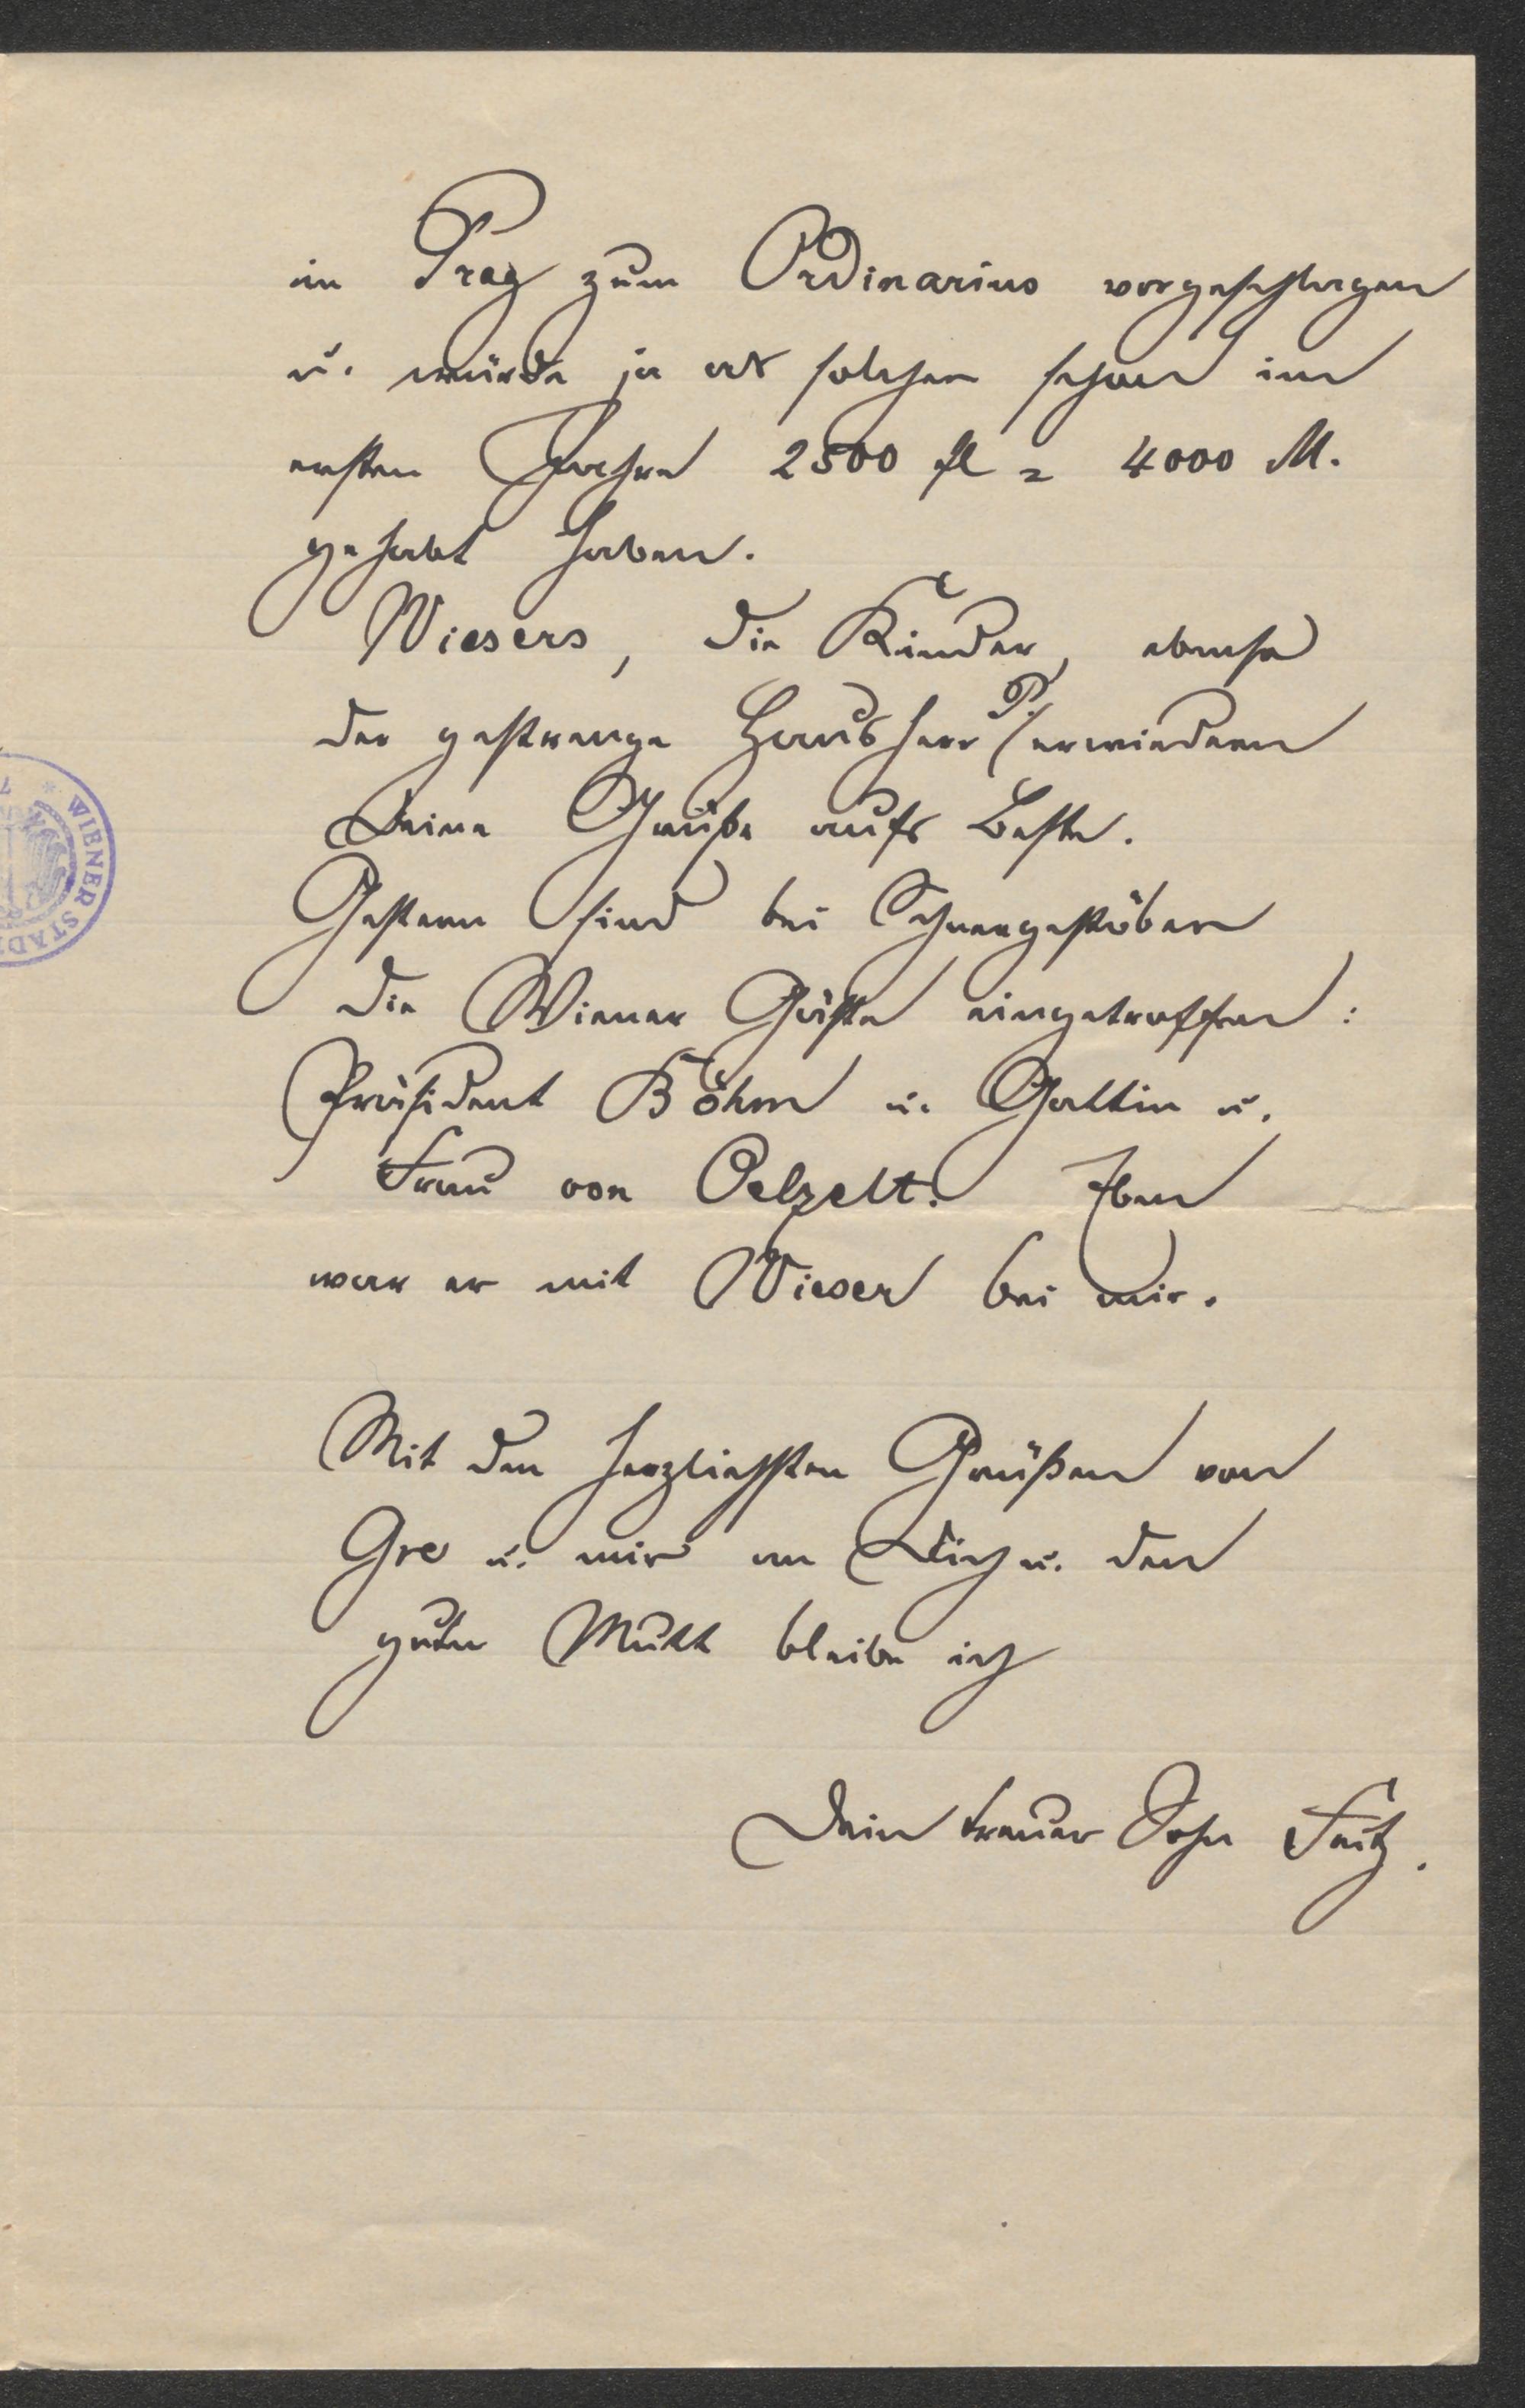 in Prag zum Ordinarius vorgeschlagen
u. würde ja als solcher schon im
ersten Jahre 2500 fl = 4000 M.
gehabt haben.
Wiesers, die Kinder, ebenso
der gestrenge Hausherr P. erwiedern
Deine Grüße aufs Beste.
Gestern sind bei Schneegestöber
die Wiener Gäste eingetroffen:
Präsident Böhm u. Gattin u.
Frau von Oelzelt. Eben
war er mit Wieser bei mir.
Mit den herzlichsten Grüßen von
Gre u. mir an Dich u. den
guten Mukk bleibe ich
Dein treuer Sohn Fritz.
WIENER STADT